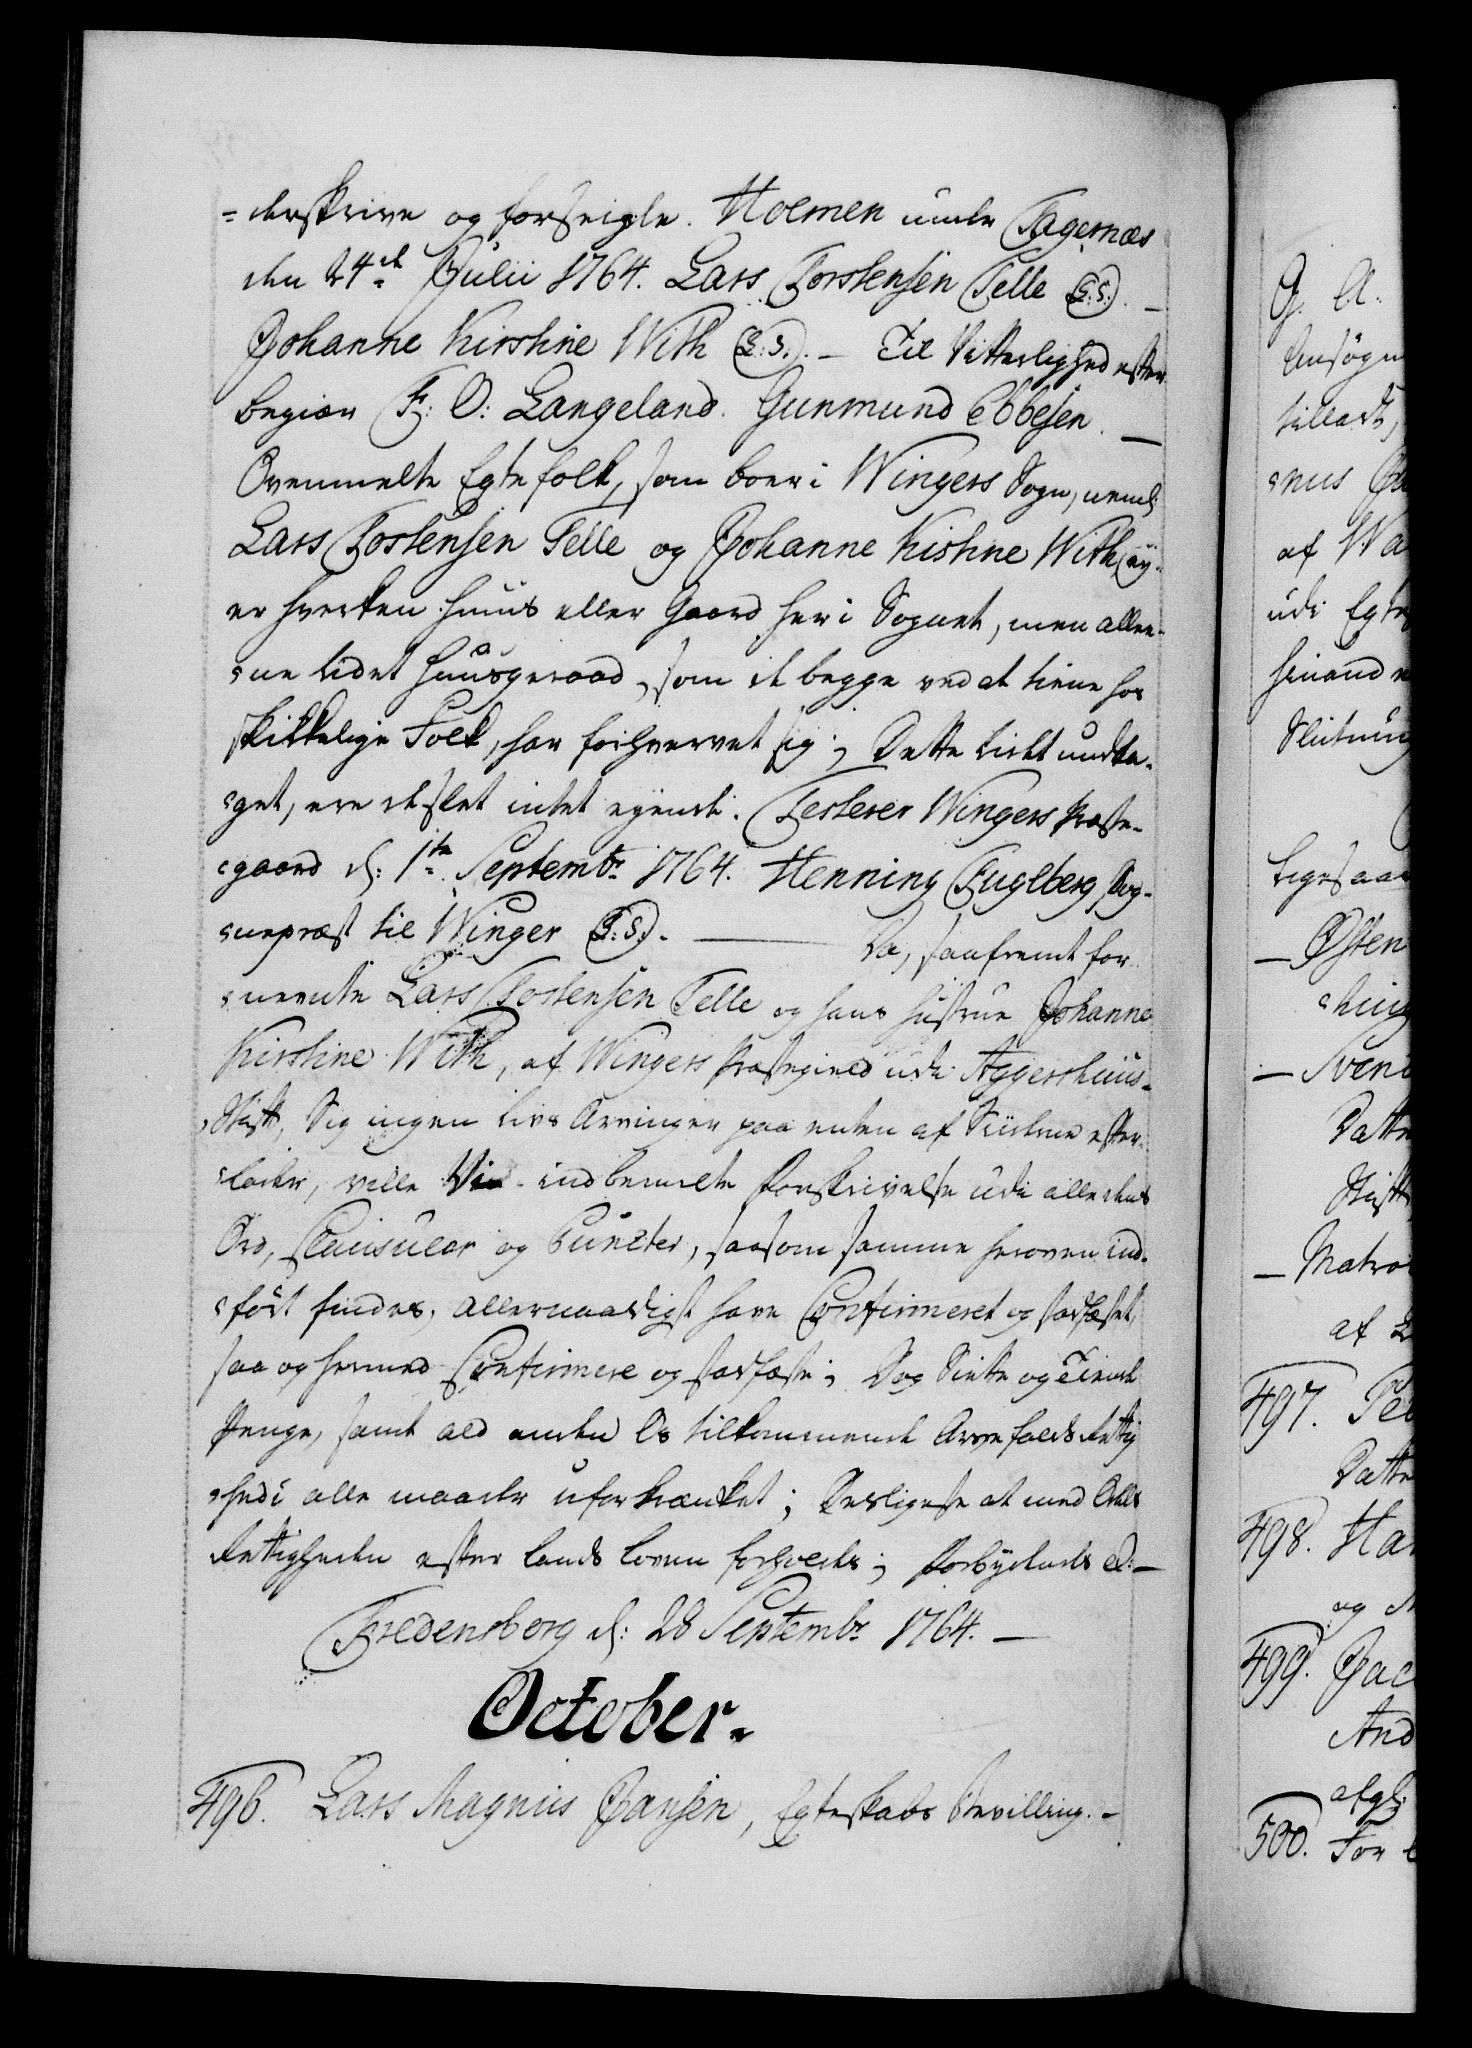 =derskrive og forseigle. Holmen under Tagernæs
den 24de Julii 1764. Lars Torstensen Telle (L:S:). —
Johanne Kirstine With (L:S:). — Til Vitterlighed efter
begiær F: O: Langeland. Gunmund Ebbesen. —
Ovenmelte Egtefolk, som boer i Wingers Sogn, neml:
Lars Tostensen Telle og Johanne Kistine With, ey-
er hverken Huus eller Gaard her i Sognet, men allee-
=ne lidet Huusgeraad, som de begge ved at tiene hos
skikkelige Folk, har forhvervet sig; Dette lidet undta-
=get, ere de slet intet eyende. Testerer Wingers Præste-
=gaard d: 1te Septembr 1764. Henning Fuglberg Sog-
=nepræst til Winger (L:S:). — Da, saafremt for-
=nevnte Lars Tostensen Telle og hans Hustrue Johanne
Kirstine With, af Wingers Præstegield udi Aggershuus-
Stift, Sig ingen Livs Arvinger paa enten af Siiderne efter-
=lader, ville Vi indbemelte Forskrivelse udi alle dens
Ord, Clausuler og Puncter, saasom samme heroven ind-
=ført findes, allernaadigst have Confirmeret og stadfæstet,
saa og hermed Confirmere og stadfæste; Dog Siette og Tiende
Penge, samt ald anden Os tilkommende Arvefalds Rettig
=hed i alle maader uforkrænket; Desligeste at med Odels
Rettigheden efter Lands Loven forholdes; Forbydendes &: —
Fredensborg d: 28 Septembr 1764. —
October.
496. Lars Magnus Jansen, Egteskabs Bevilling. —
G. A.
Ansøgn
tilladt,
af Wa
udi Egte
hinand
Slutning
Ligesaa
— Østen
— Svend
Datte
Stift
— Matro
af L
497. Pe
Datte
498. Ha
og
499. Jac
And
afgl:
500. For